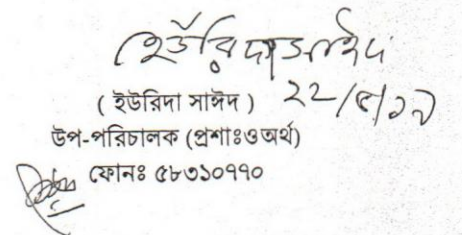 ইউরিদা সাঈদ
২২/৫/১৭
( ইউরিদা সাঈদ )
উপ-পরিচালক (প্রশাঃওঅর্থ)
ফোনঃ ৫৮৩১০৭৭০